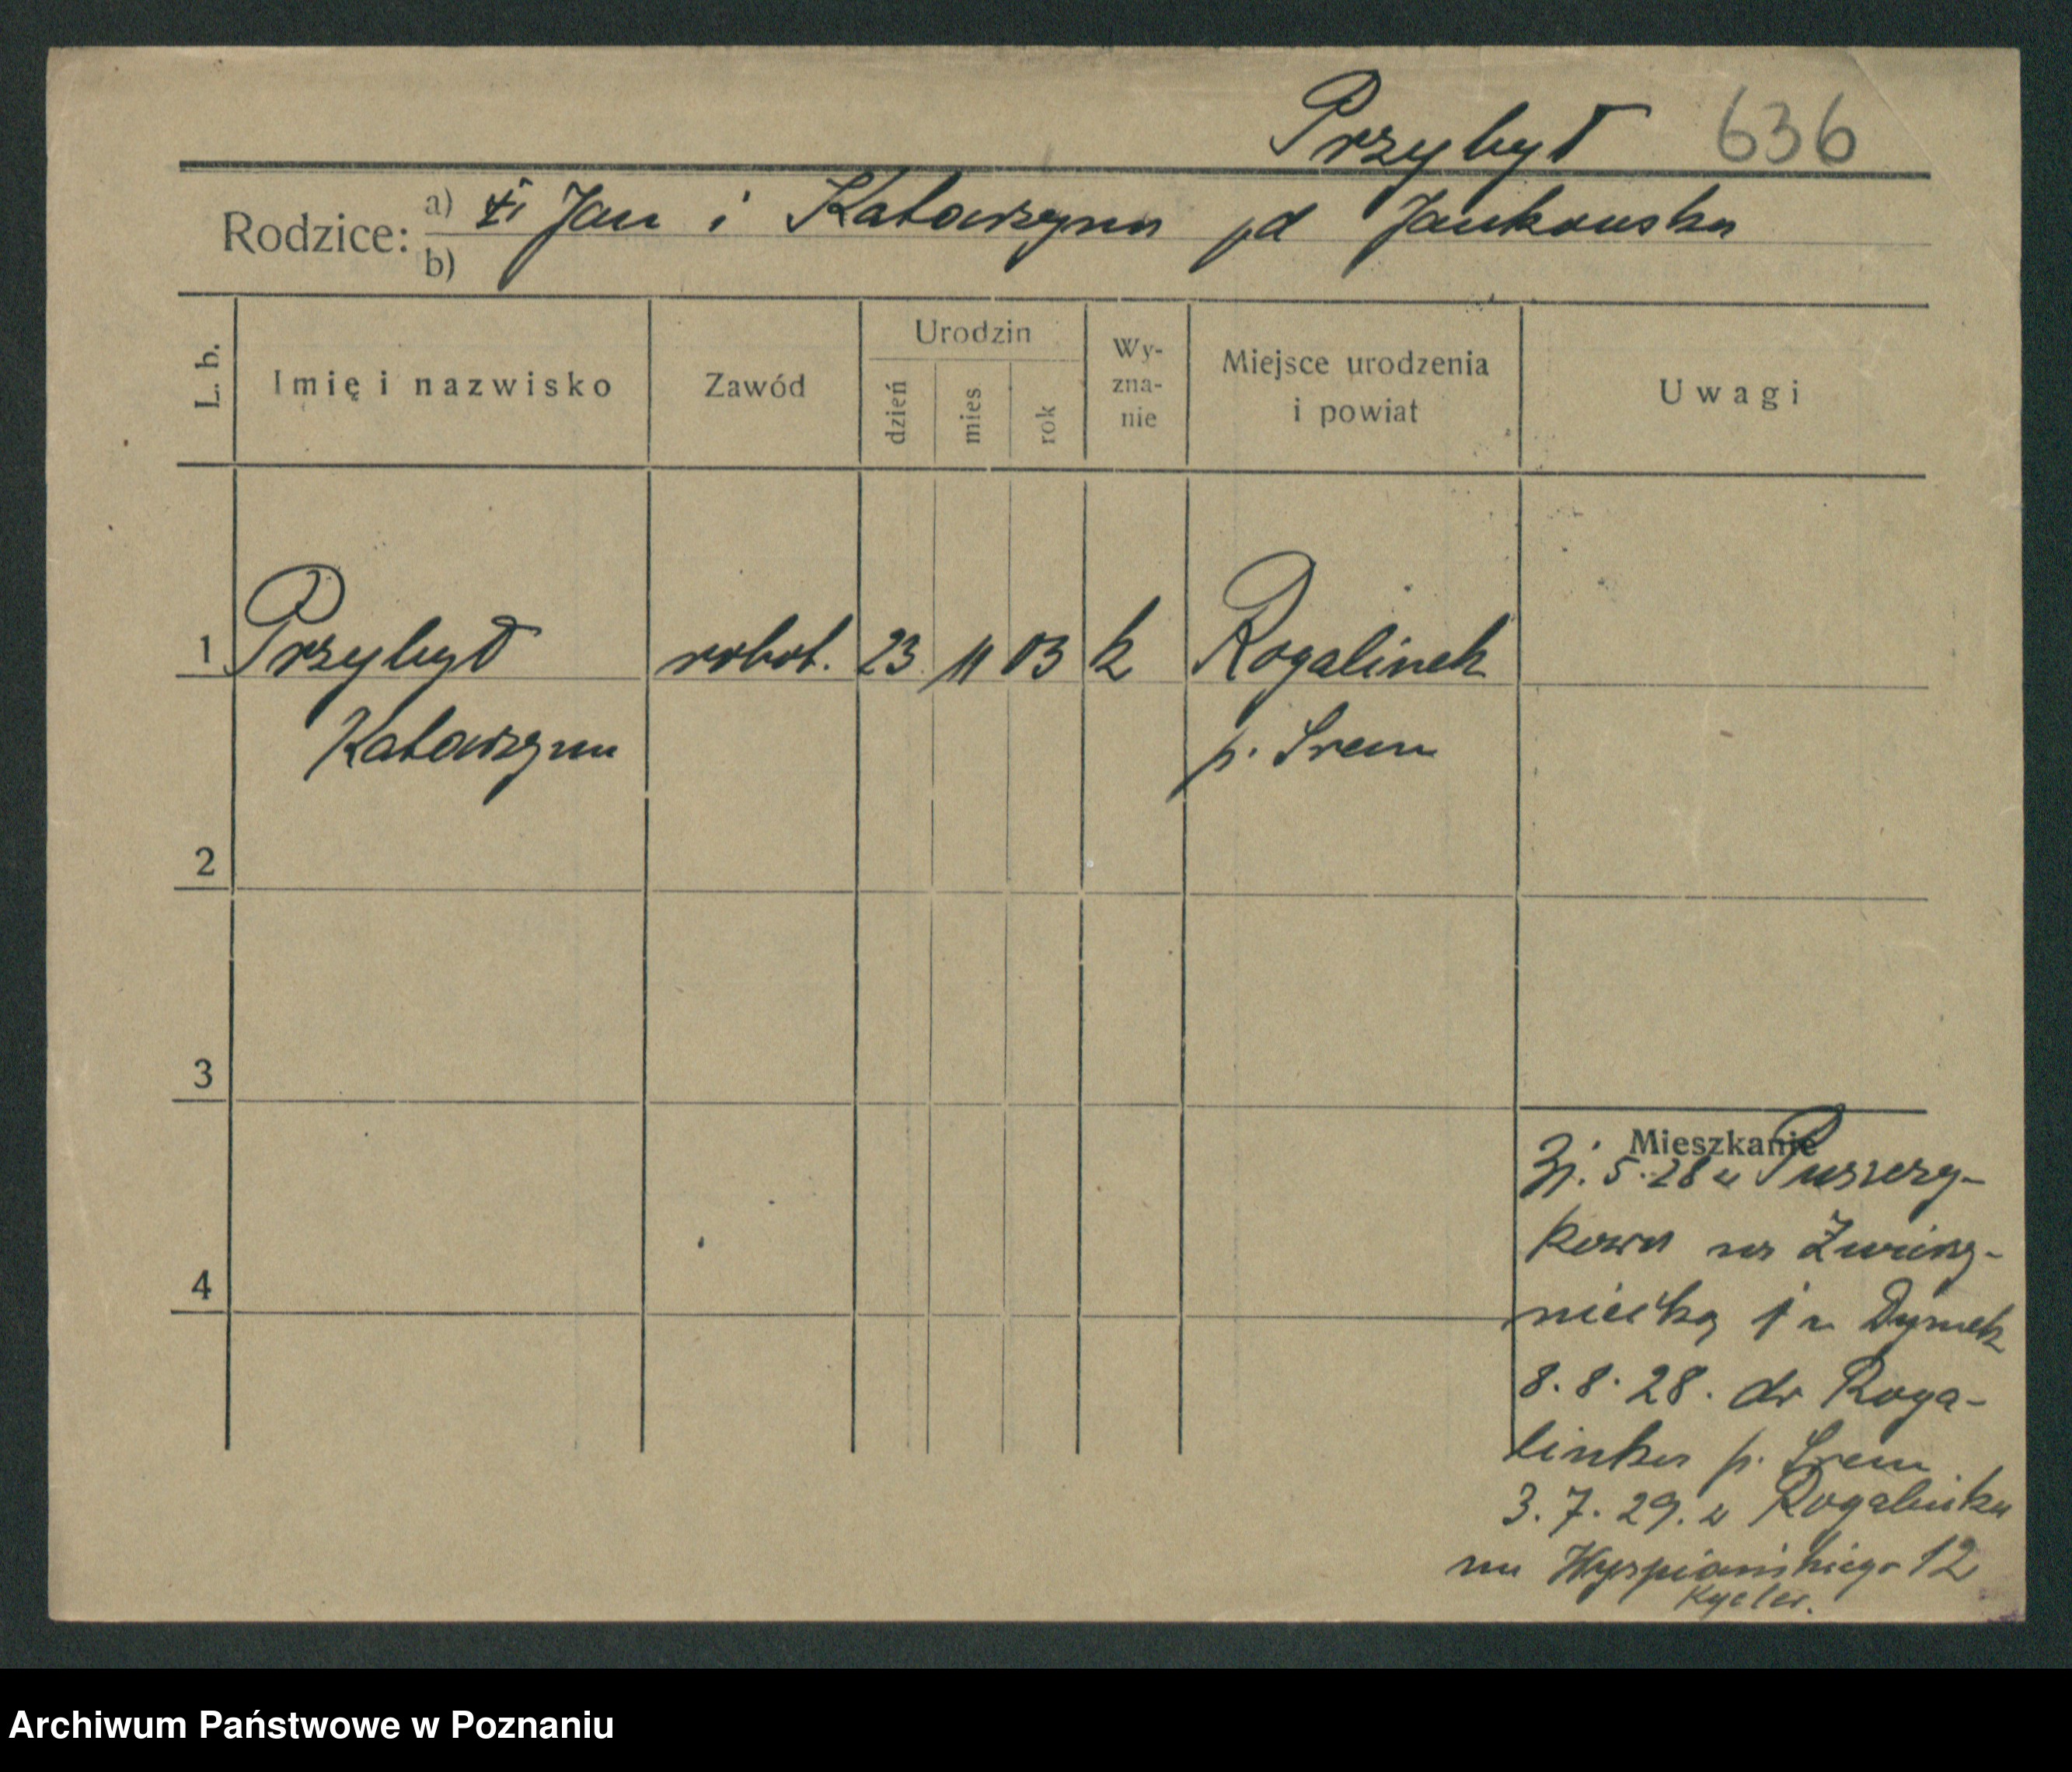 Przybył 636
Rodzice: a) Jan i Katarzyna pd Jankowska
b)
L. b. Imię i nazwisko Zawód Urodzin dzień mies rok Wyznanie Miejsce urodzenia i powiat Uwagi
1 Przybył robot. 23 11 03 k Rogalinek
Katarzyna p. Srem
2
3
4
Mieszkanie
5.28 z Puszczy-
kowa na Zwierzy-
niecką 1 u Dymek
8.8.28. do Roga-
linka p. Srem
3.7.29. z Rogalinka
na Wyspiańskiego 12
Archiwum Państwowe w Poznaniu